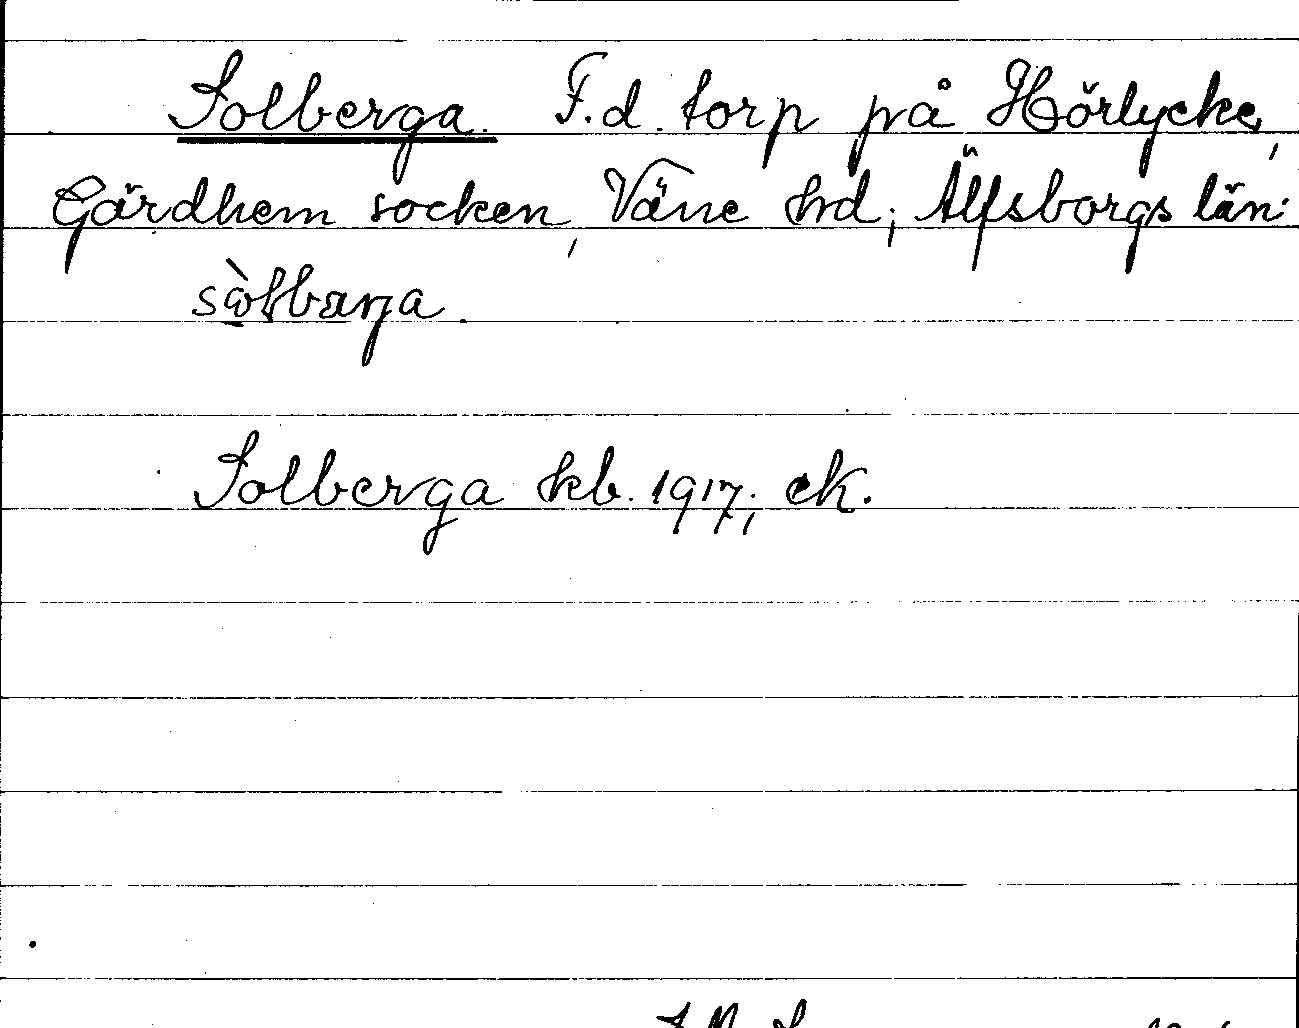 Solberga. F.d. torp på Hörlycke,
Gärdhem socken, Väne hrd, Älfsborgs län:
Solberga kb. 1917, ek.